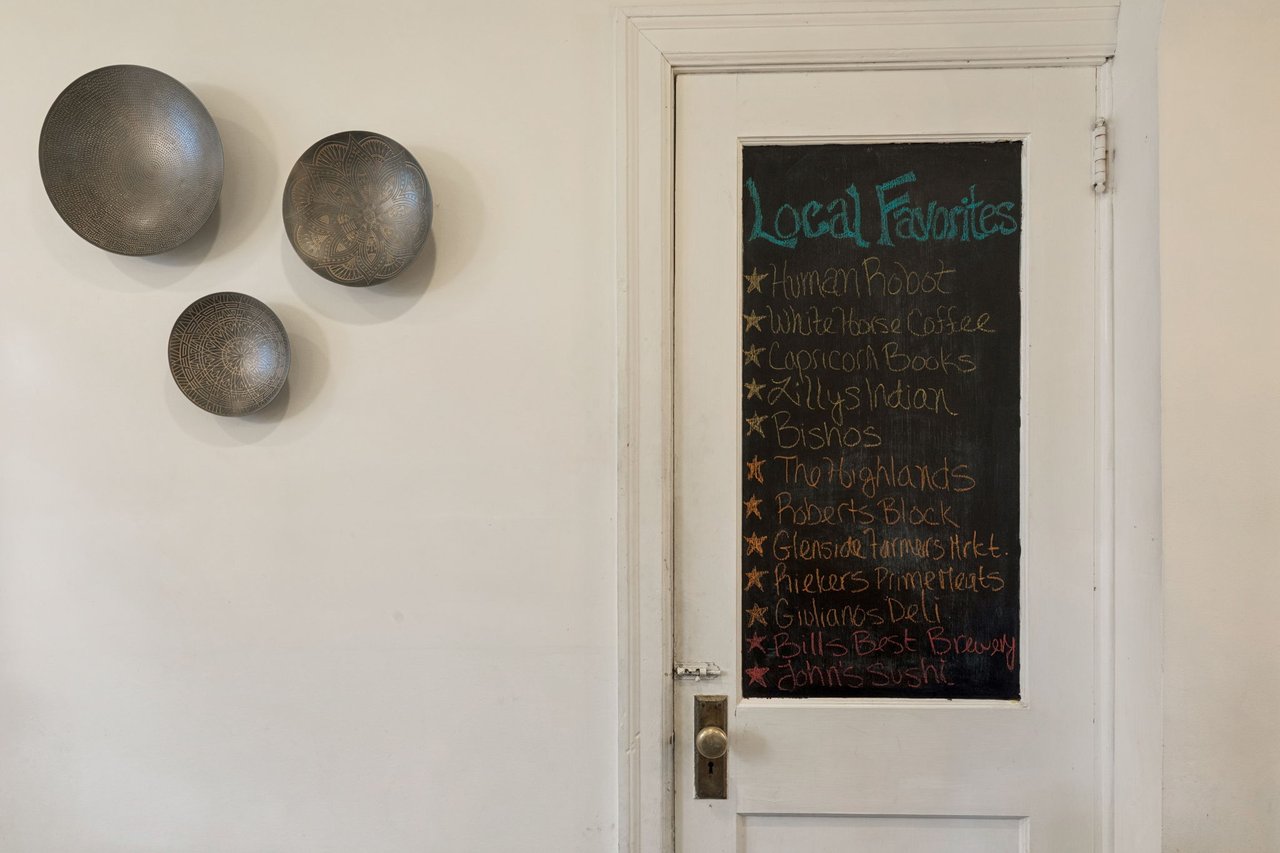 Local Favorites
Human Robot
White Horse Coffee
Capricorn Books
Lillys Indian
Bishos
The Highlands
Roberts Block
Glenside Farmers Mrkt.
Riekers Prime Meats
Giulianos Deli
Bills Best Brewery
John's Sushi